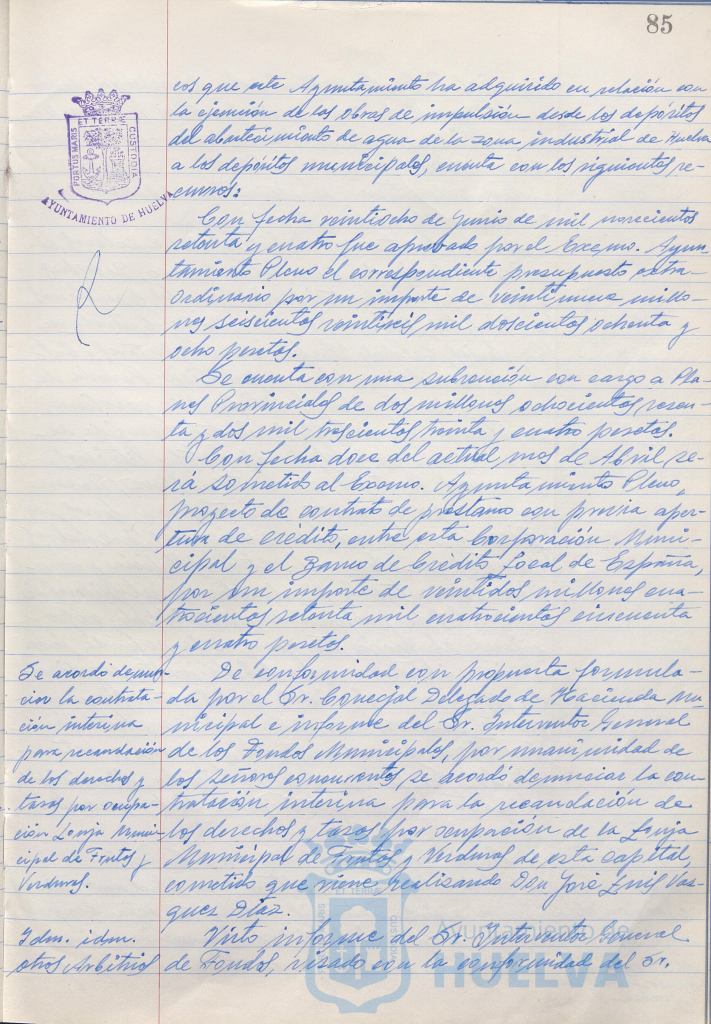 85
PORTUS MARIS ET TERRAE CUSTODIA
AYUNTAMIENTO DE HUELVA
cos que este Ayuntamiento ha adquirido en relación con
la ejecución de las obras de impulsión desde los depósitos
del abastecimiento de agua de la zona industrial de Huelva
a los depósitos municipales, cuenta con los siguientes re-
cursos:
Con fecha veintiocho de Junio de mil novecientos
setenta y cuatro fue aprobado por el Excmo. Ayun-
tamiento Pleno el correspondiente presupuesto extra-
ordinario por un importe de veintinueve millo-
nes seiscientas veintiseis mil doscientas ochenta y
ocho pesetas.
Se cuenta con una subvención con cargo a Pla-
nes Provinciales de dos millones ochocientas sesen-
ta y dos mil trescientas treinta y cuatro pesetas.
Con fecha doce del actual mes de Abril se-
rá sometido al Excmo. Ayuntamiento Pleno,
proyecto de contrato de préstamo con previa aper-
tura de crédito, entre esta Corporación Muni-
cipal y el Banco de Crédito Local de España,
por un importe de veintidos millones cua-
trocientas setenta mil cuatrocientas cincuenta
y cuatro pesetas.
Se acordó denun-
ciar la contrata-
ción interina
para recaudación
de los derechos y
tasas por ocupa-
ción Lonja Muni-
cipal de Frutas y
Verduras.
De conformidad con propuesta formula-
da por el Sr. Concejal Delegado de Hacienda Mu-
nicipal e informe del Sr. Interventor General
de los Fondos Municipales, por unanimidad de
los señores concurrentes, se acordó denunciar la con-
tratación interina para la recaudación de
los derechos y tasas por ocupación de la Lonja
Municipal de Frutas y Verduras de esta capital,
cometido que viene realizando Don José Luis Vas-
quez Díaz.
Idm. idm.
otros Arbitrios
Visto informe del Sr. Interventor General
de Fondos, visado con la conformidad del Sr.
Ayuntamiento de
HUELVA